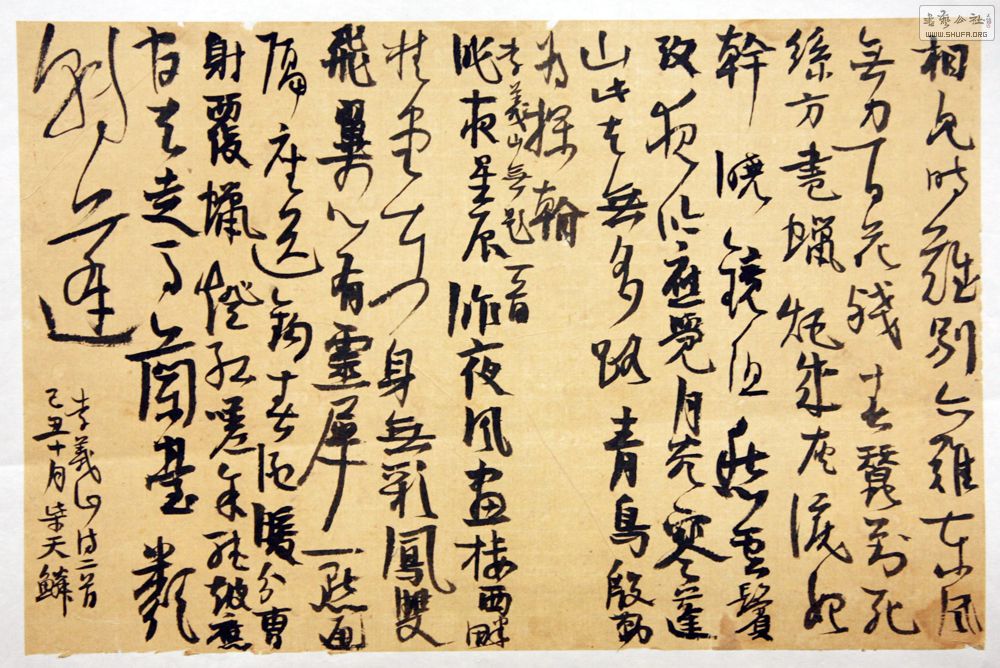 相見時難別亦難東風
無力百花殘春蠶到死
絲方盡蠟炬成灰淚始
幹曉鏡但愁雲鬢
改夜吟應覺月光寒蓬
山此去無多路青鳥殷勤
為探翰
李義山無題一首
昨夜星辰昨夜風畫樓西畔
桂堂東身無彩鳳雙
飛翼心有靈犀一點通
隔座送鉤春酒暖分曹
射覆蠟燈紅嗟余聽鼓應
官去走馬蘭臺類
轉蓬
李義山詩二首
己丑十月柴天鱗
書藝公社
WWW.SHUFA.ORG